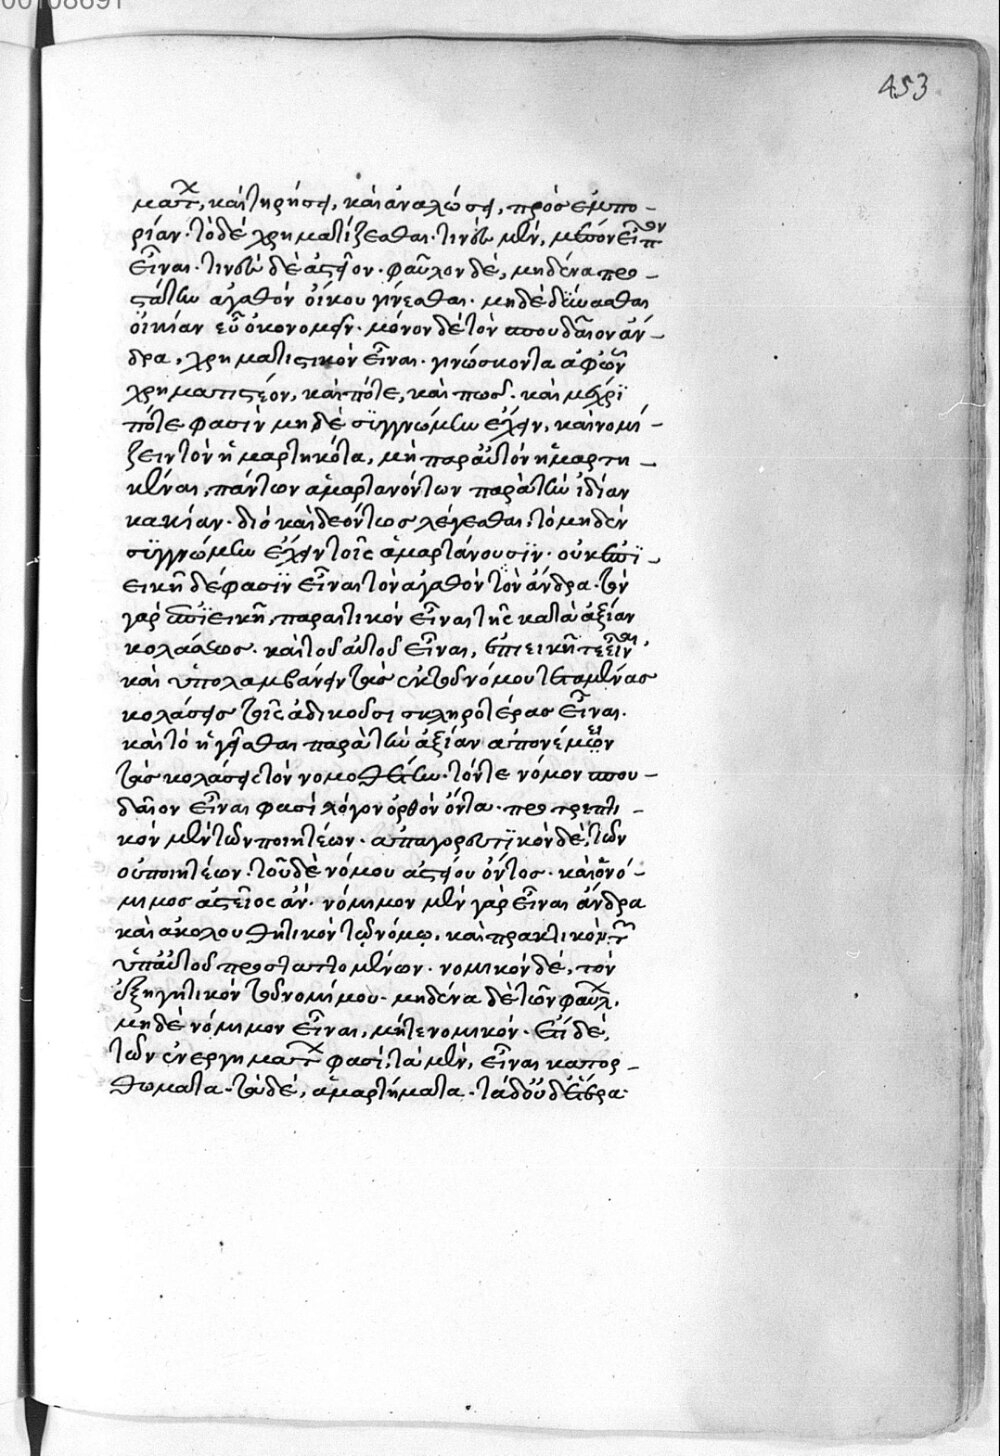 453
ματ, καὶ τηρήσει, καὶ ἀναλώσει, πρὸς εὐπο-
ρίαν· τὸ δὲ χρηματίζεσθαι· τινὲς μὲν, μέσον εἶπον
εἶναι· τινὲς δὲ ἀστεῖον· φαῦλον δὲ, μηδένα προ-
στάτην ἀγαθὸν οἴκου γίνεσθαι· μηδὲ δύνασθαι
οἰκίαν εὖ οἰκονομεῖν· μόνον δὲ τὸν σπουδαῖον ἄν-
δρα, χρηματιστικὸν εἶναι· γινώσκοντα ἀφ' ὧν
χρηματιστέον, καὶ πότε, καὶ πῶς· καὶ μέχρι
πότε φασὶν μηδὲ συγγνώμην ἔχειν, καὶ νομί-
ζειν τὸν ἡμαρτηκότα, μὴ παρ' αὐτὸν ἡμαρτη-
κέναι, πάντων ἁμαρτανόντων παρὰ τὴν ἰδίαν
κακίαν· διὸ καὶ δεόντως λέγεσθαι, τὸ μηδὲν
συγγνώμην ἔχειν τοῖς ἁμαρτάνουσιν· οὐκ ἐπι-
εικῆ δέ φασιν εἶναι τὸν ἀγαθὸν τὸν ἄνδρα· τὸν
γὰρ ἐπιεικῆ, παραιτικὸν εἶναι τῆς κατὰ ἀξίαν
κολάσεως· καὶ τοῦ αὐτοῦ εἶναι, ἐπιεικῆ τε εἶναι,
καὶ ὑπολαμβάνειν τὰς ἐκ τοῦ νόμου τεταμένας
κολάσεις τοῖς ἀδικοῦσι σκληροτέρας εἶναι·
καὶ τὸ ἡγεῖσθαι παρὰ τὴν ἀξίαν ἀπονέμειν
τὰς κολάσεις τὸν νομοθέτην· τόν τε νόμον σπου-
δαῖον εἶναι φασὶ λόγον ὀρθὸν ὄντα· προτρεπτι-
κὸν μὲν τῶν ποιητέων· ἀπαγορευτικὸν δὲ, τῶν
οὐ ποιητέων· τοῦ δὲ νόμου ἀστείου ὄντος· καὶ ὁ νό-
μιμος ἀστεῖος ἂν· νόμιμον μὲν γὰρ εἶναι ἄνδρα
καὶ ἀκολουθητικὸν τῷ νόμῳ, καὶ πρακτικὸν τῶν
ὑπ' αὐτοῦ προσταττομένων· νομικὸν δὲ, τὸν
ἐξηγητικὸν τοῦ νομίμου· μηδένα δὲ τῶν φαύλ,
μηδὲ νόμιμον εἶναι, μήτε νομικόν· ἔτι δὲ,
τῶν ἐνεργηματ φασὶ, τὰ μὲν, εἶναι κατορ-
θώματα· τὰ δὲ, ἁμαρτήματα· τὰ δ' οὐδέτερα·